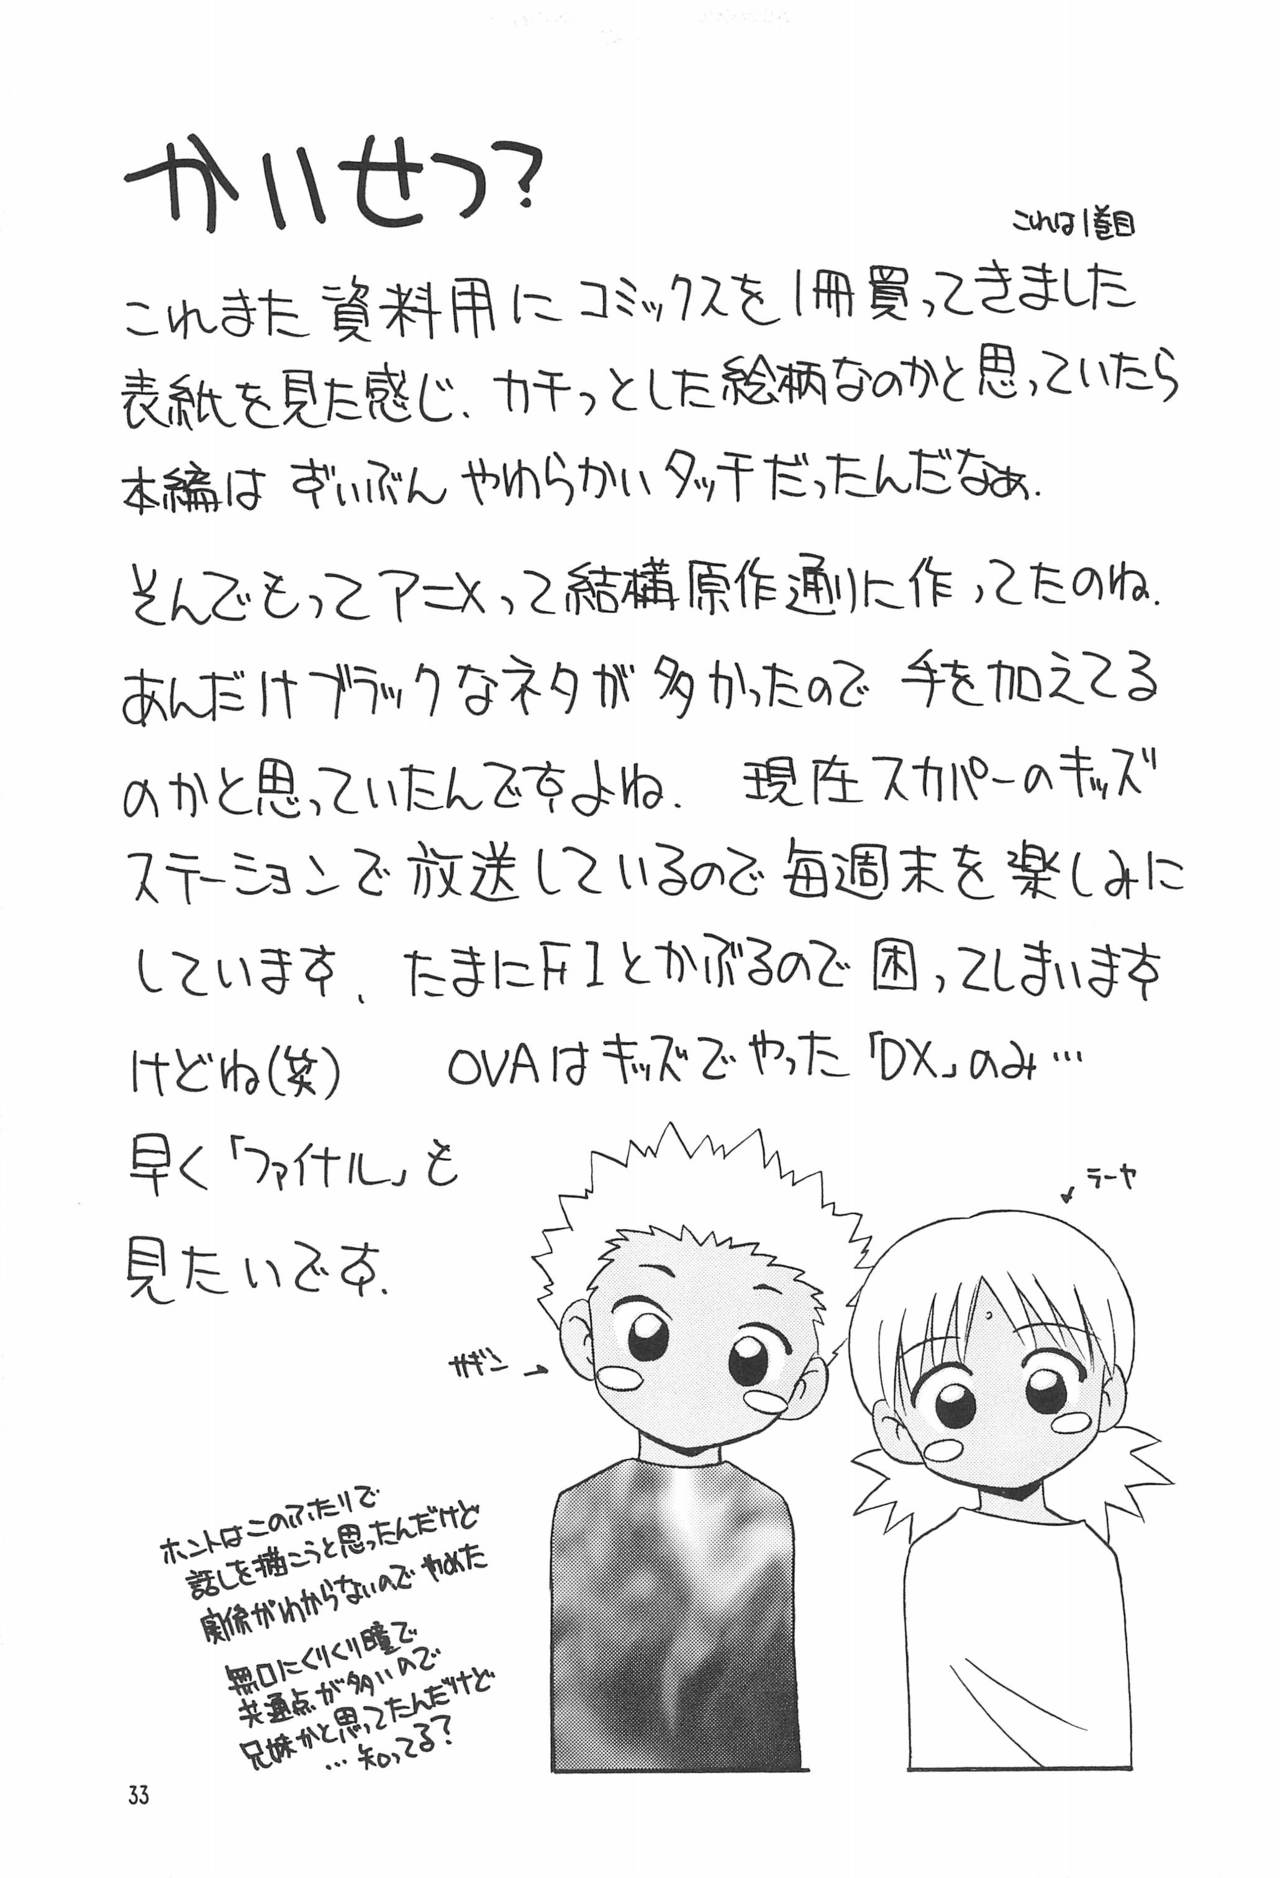 かいせつ?
これは1巻目
これまた資料用にコミックスを1冊買ってきました
表紙を見た感じ、カチっとした絵柄なのかと思っていたら
本編はずいぶんやわらかいタッチだったんだなぁ.
そんでもってアニメって結構原作通りに作ってたのね.
あんだけブラックなネタが多かったので手を加えてる
のかと思っていたんですよね. 現在スカパーのキッズ
ステーションで放送しているので毎週末を楽しみに
しています、たまにF1とかぶるので困ってしまいます
けどね(笑) OVAはキッズでやった「DX」のみ…
早く「ファイナル」も
見たいです.
ラーヤ
ガギン
ホントはこのふたりで
話しを描こうと思ったんだけど
関係がわからないのでやめた
無口にくりくり瞳で
共通点が多いので
兄妹かと思ってたんだけど
…知ってる?
33